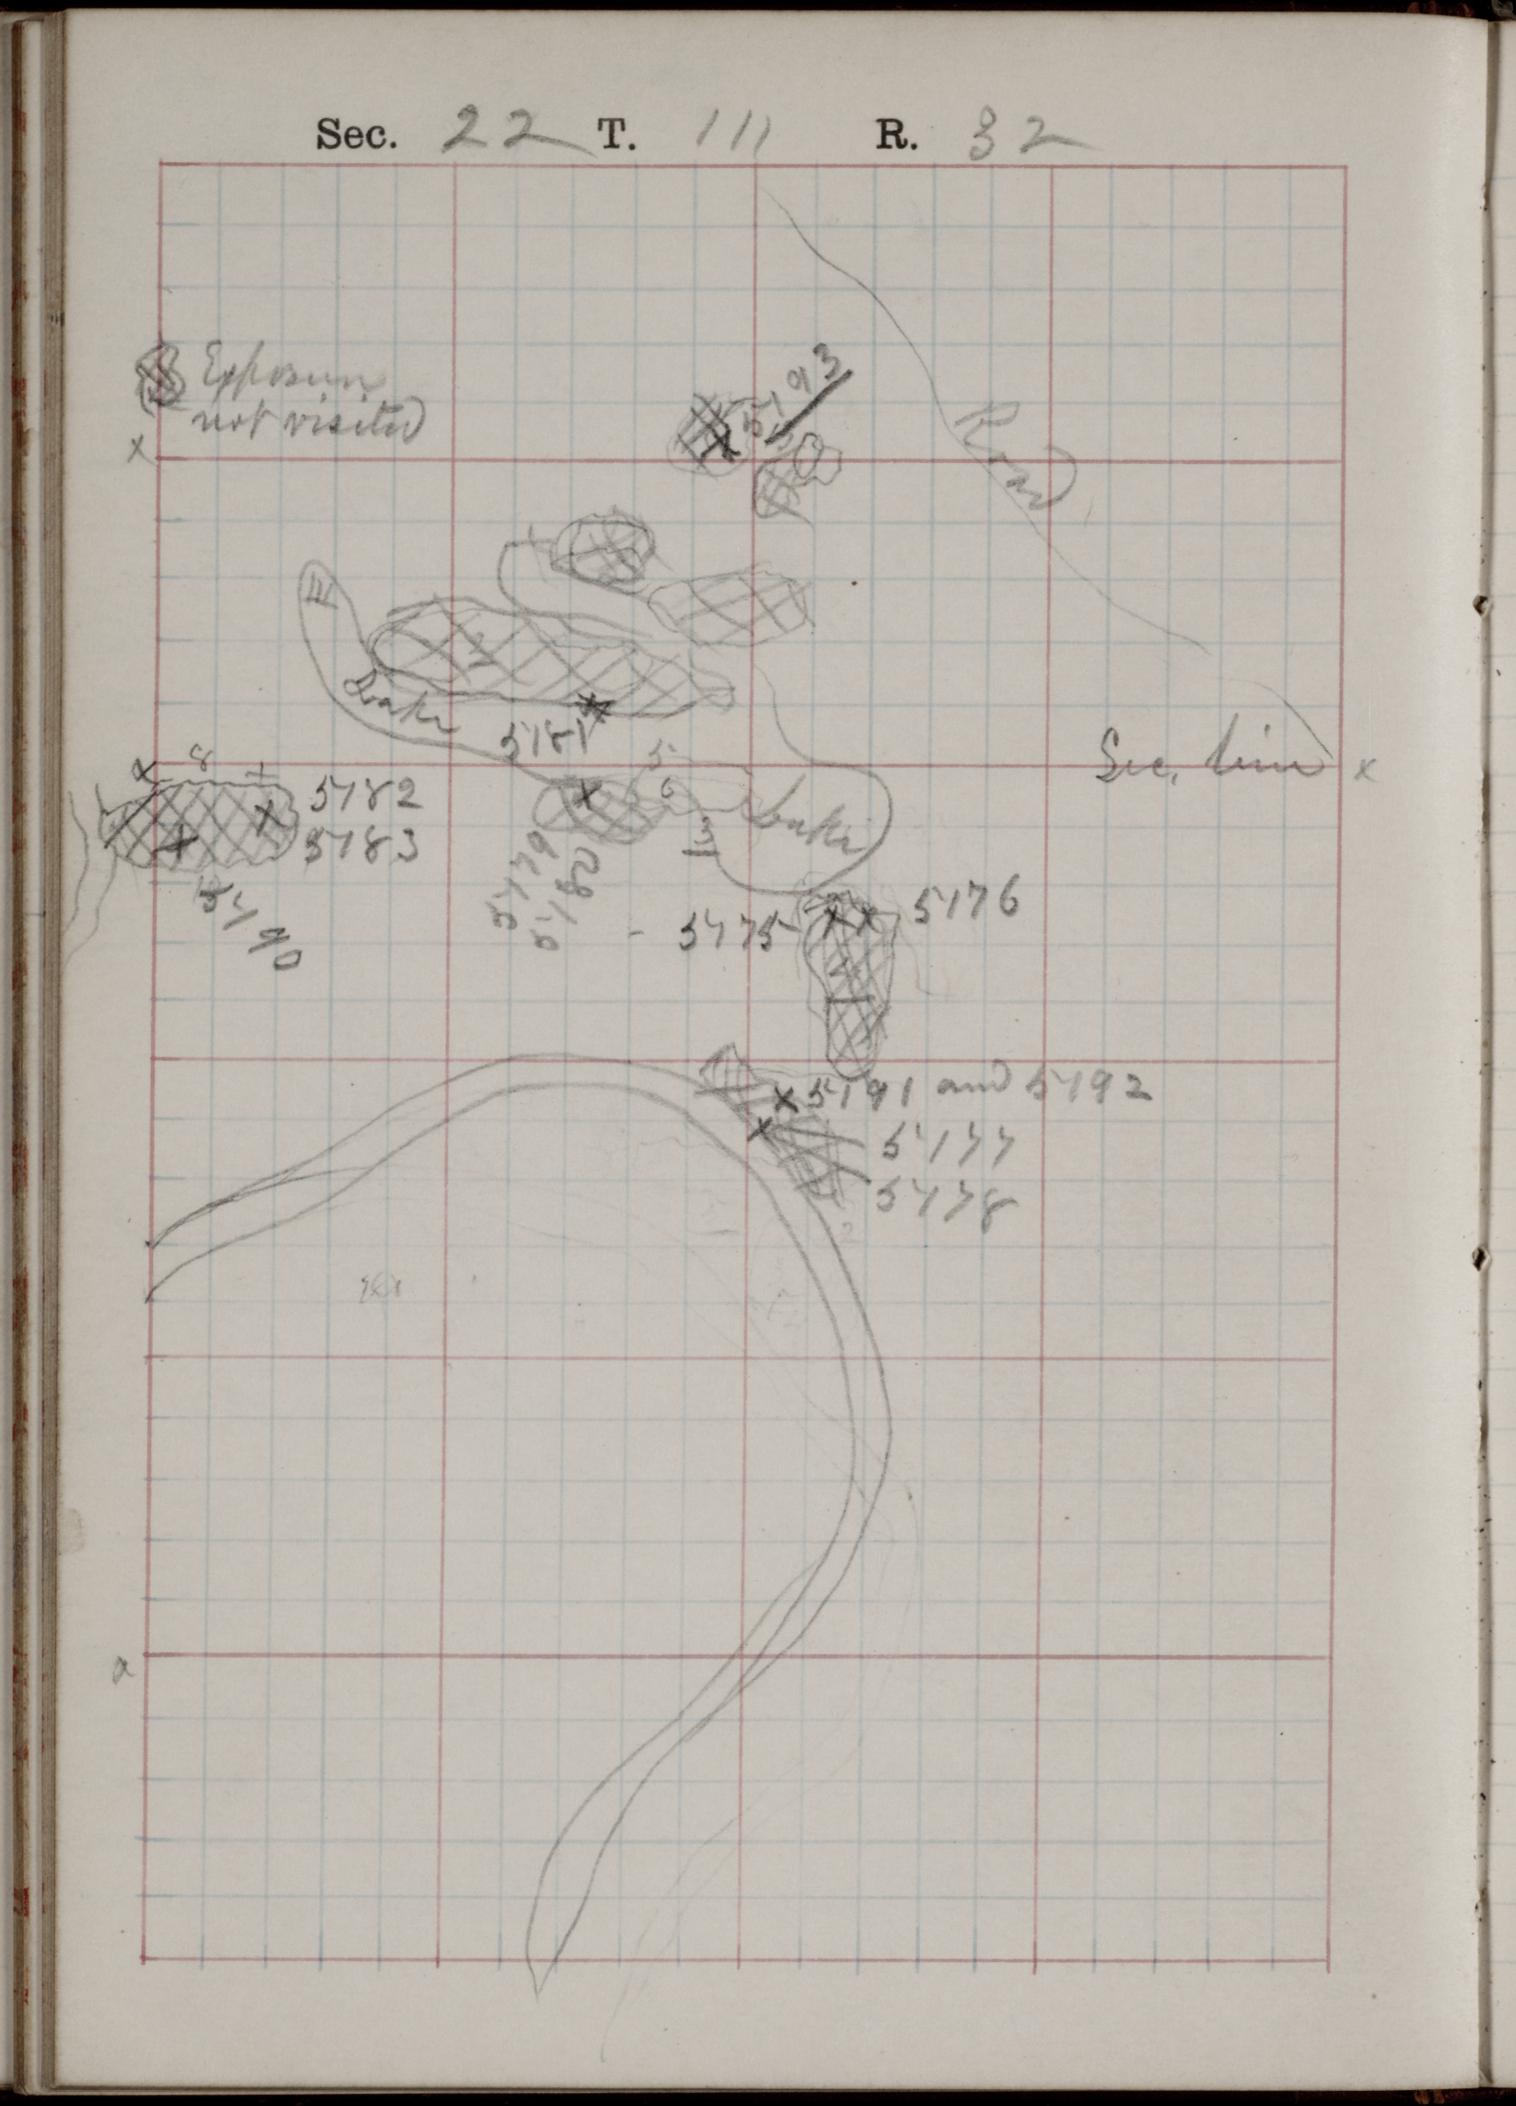 Sec. 22 T. 111 R. 32
Exposure
not visited
x
5193
Road
III
Lake
5181
Sec. line x
8
5182
5183
5190
5
6
Lake
3
5179
5180
5175
5176
x 5191 and 5192
x 5177
5178
a